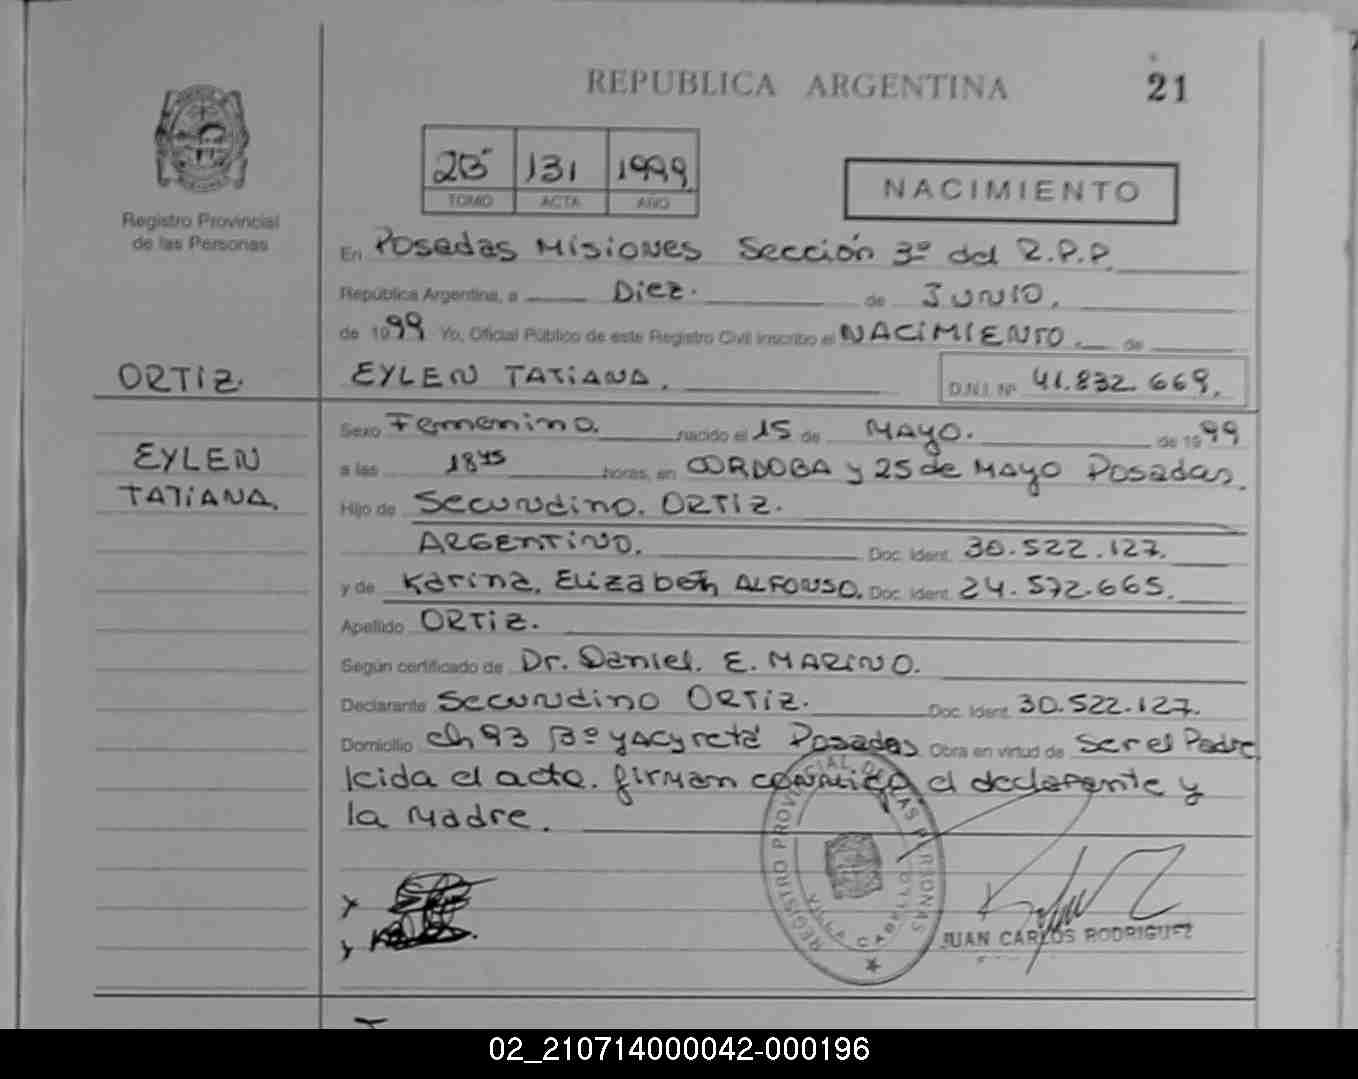 REPUBLICA ARGENTINA
21
Registro Provincial
de las Personas
2B 131 1999
TOMO ACTA AÑO
NACIMIENTO
En Posadas Misiones Sección 3º del R.P.P.
República Argentina, a Diez. de Junio.
de 1999 Yo, Oficial Público de este Registro Civil inscribo el NACIMIENTO. de
ORTIZ. EYLEN TATIANA. D.N.I. Nº 41.832.669.
Sexo Femenino. nacido el 15 de MAYO. de 1999
EYLEN
TATIANA.
a las 18 45 horas, en CORDOBA y 25 de MAYO Posadas.
Hijo de Secundino. ORTIZ.
ARGENTINO. Doc. Ident. 30.522.127.
y de Karina. Elizabeth ALFONSO. Doc. Ident. 24.572.665.
Apellido ORTIZ.
Según certificado de Dr. Daniel. E. MARINO.
Declarante Secundino ORTIZ. Doc. Ident. 30.522.127.
Domicilio ch 93 Bº yacyretá Posadas Obra en virtud de Ser el Padre
leida el acta. firman conmigo el declarante y
la Madre.
REGISTRO PROVINCIAL DE LAS PERSONAS
VILLA CABELLO
JUAN CARLOS RODRIGUEZ
02_210714000042-000196